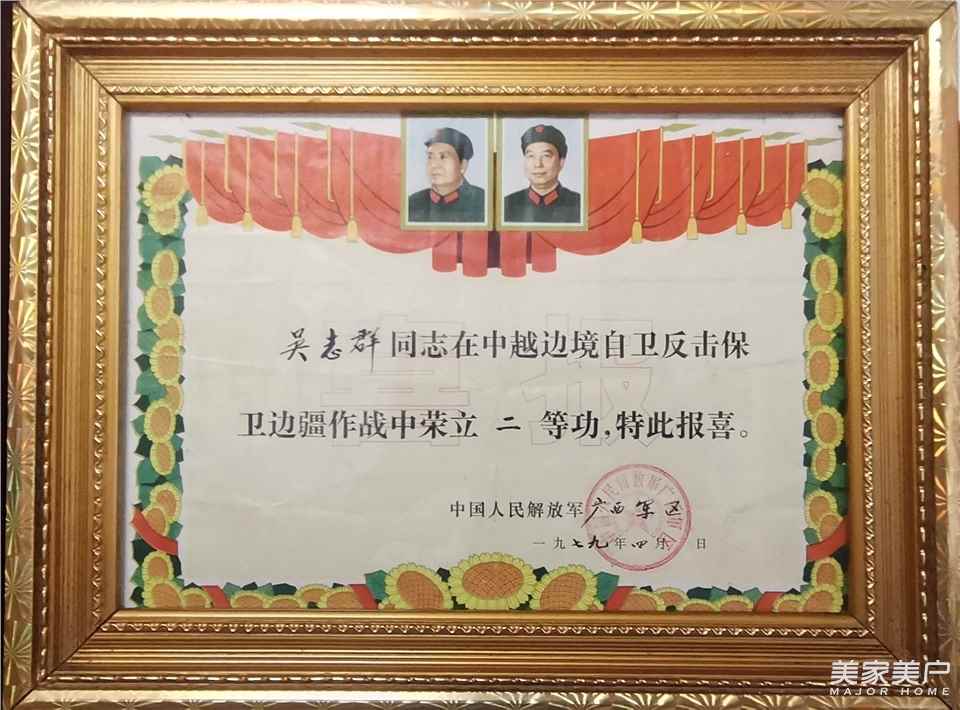 喜报
吴志群同志在中越边境自卫反击保
卫边疆作战中荣立 二 等功，特此报喜。
中国人民解放军广西军区
一九七九年四月 日
美家美户
MAJOR HOME